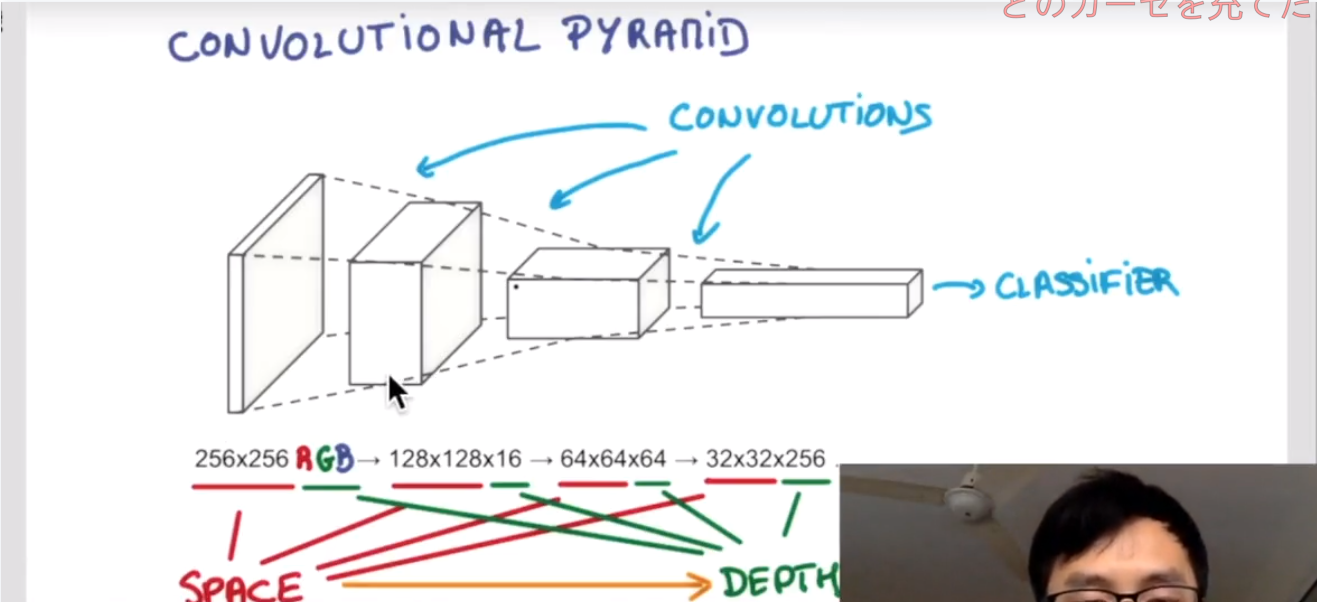 どのガーゼを充てた
CONVOLUTIONAL PYRAMiD
CONVOLUTiONS
CLASSiFiER
256x256 RGB → 128x128x16 → 64x64x64 → 32x32x256
SPACE → DEPTH